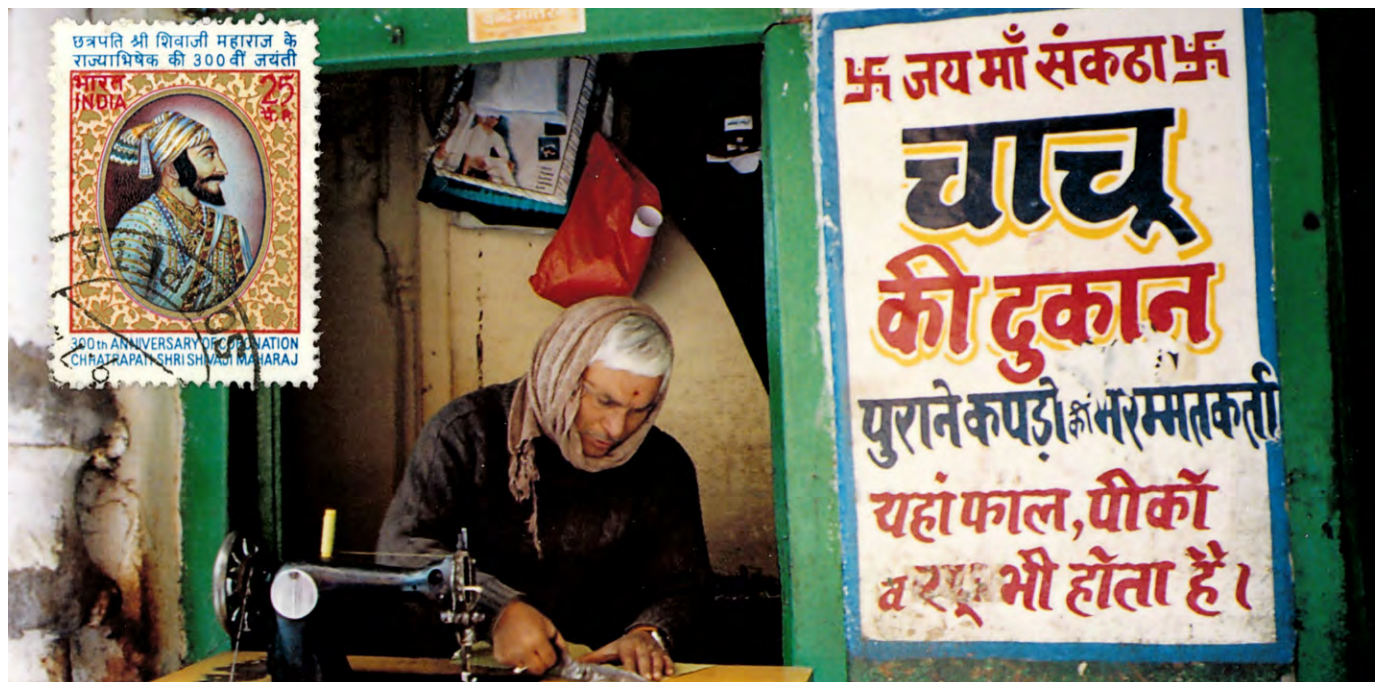 छत्रपति श्री शिवाजी महाराज के
राज्याभिषेक की 300वीं जयंती
भारत
INDIA
25
300th ANNIVERSARY OF CORONATION
CHHATRAPATI SHRI SHIVAJI MAHARAJ
卐 जय माँ संकठा 卐
चाचू
की दुकान
पुराने कपड़ो की मरम्मतकर्ता
यहां फाल, पीको
व रफू भी होता है।